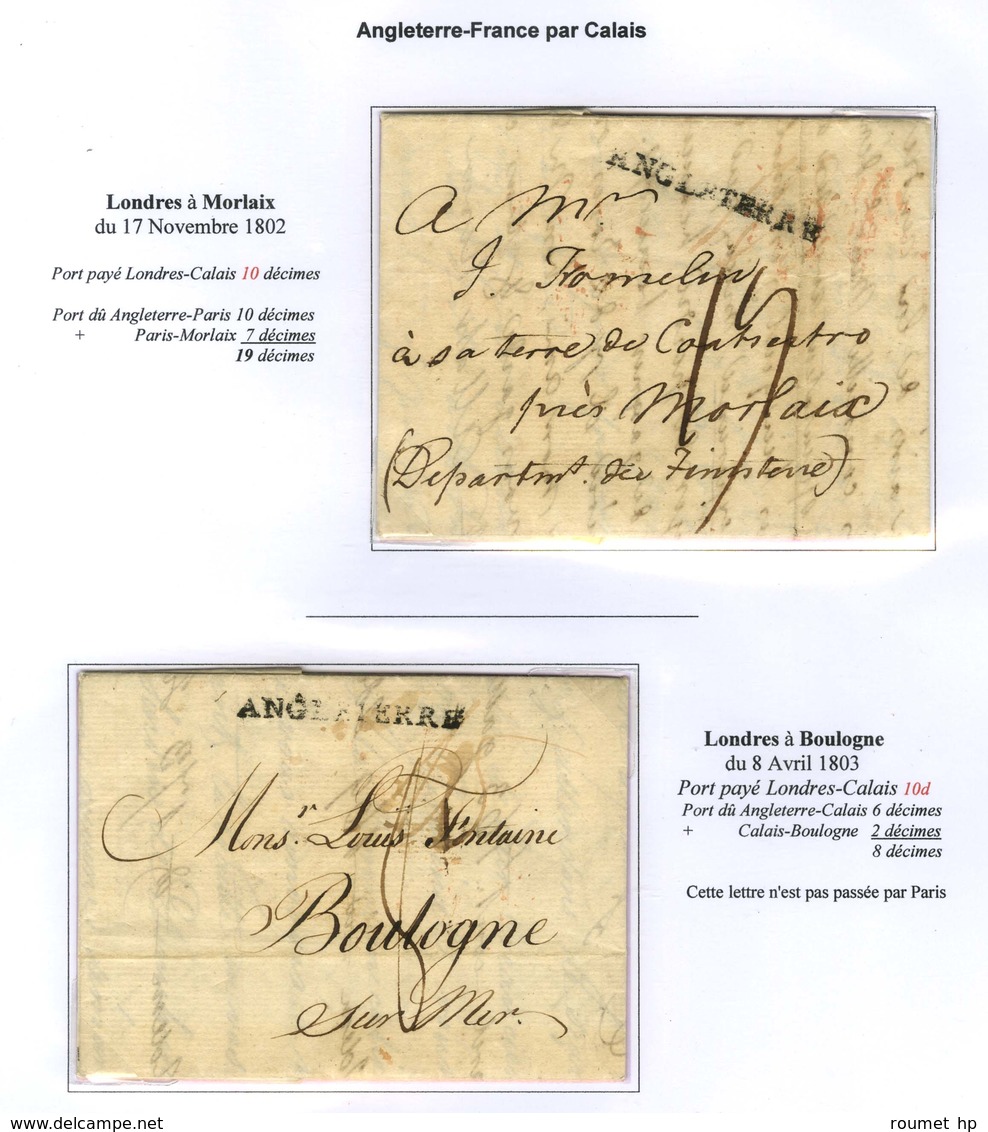 Angleterre-France par Calais
Londres à Morlaix
du 17 Novembre 1802
Port payé Londres-Calais 10 décimes
Port dû Angleterre-Paris 10 décimes
+ Paris-Morlaix 7 décimes
19 décimes
ANGLETERRE
A Mr
J. Fromelin
à sa terre de
près Morlaix
(Departmt. de Finisterre)
19
ANGLETERRE
Monsr. Louis Fontaine
Boulogne
Sur Mer.
8
Londres à Boulogne
du 8 Avril 1803
Port payé Londres-Calais 10d
Port dû Angleterre-Calais 6 décimes
+ Calais-Boulogne 2 décimes
8 décimes
Cette lettre n'est pas passée par Paris
www.delcampe.net
roumet hp